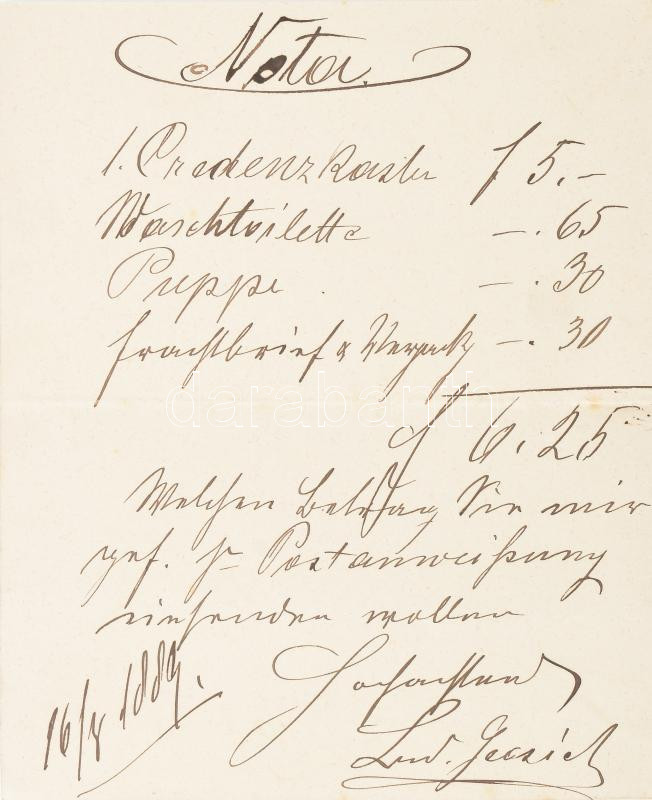 Nota.
1. Credenzkastn f 5.–
Waschtoilette –.65
Puppe –.30
Frachtbrief & Verpack –.30
darabanth
f 6.25
Welchen Betrag Sie mir
gef. pr Postanweißung
einsenden wollen
Hochachtend
16/ 1889.
Lud.